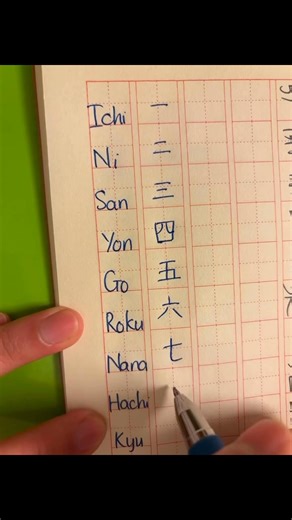 Ichi 一
Ni 二
San 三
Yon 四
Go 五
Roku 六
Nana 七
Hachi
Kyu